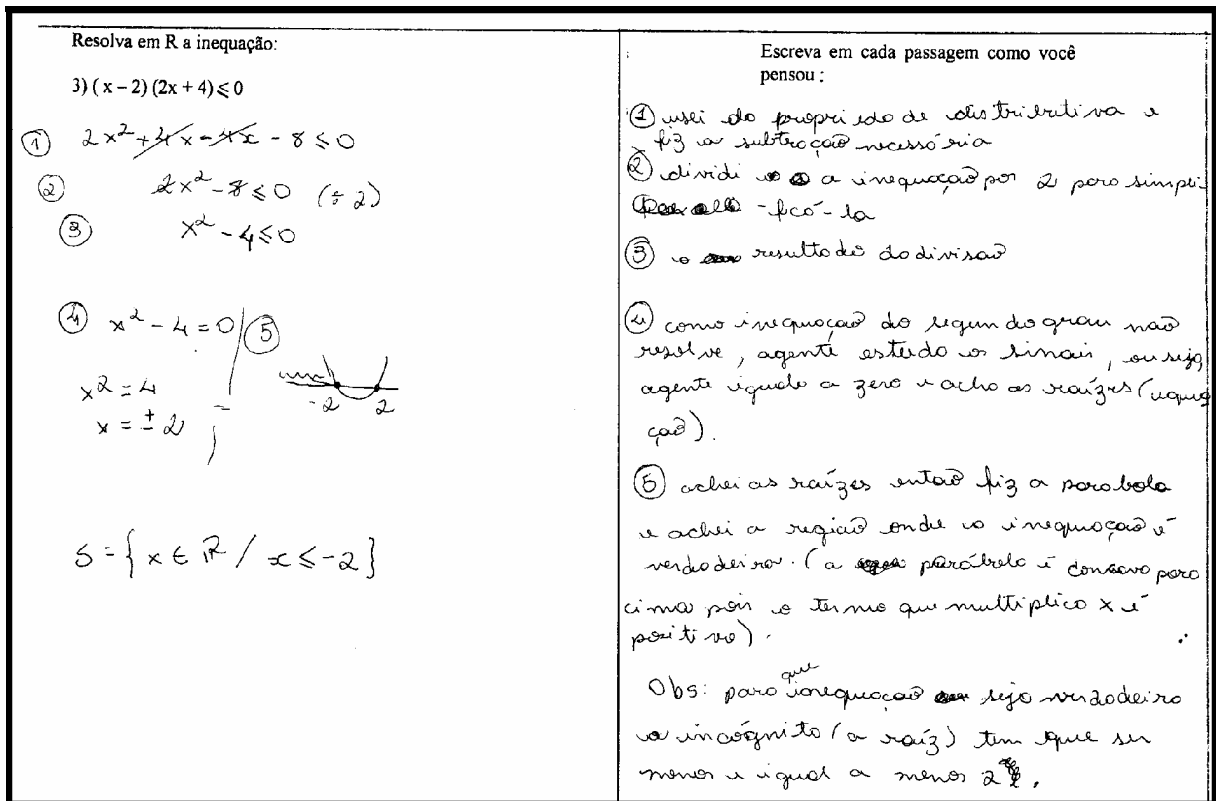 Resolva em R a inequação:
3) ( x – 2) (2x + 4) ≤ 0
① 2x² + 4x - 4x - 8 ≤ 0
② 2x² - 8 ≤ 0 (÷ 2)
③ x² - 4 ≤ 0
④ x² - 4 = 0
x² = 4
x = ± 2
⑤
-2 2
S = { x ∈ R / x ≤ -2 }
Escreva em cada passagem como você
pensou :
① usei da propriedade distributiva e
fiz a subtração necessária
② dividi a inequação por 2 para simpli
-ficá-la
③ o resultado da divisão
④ como inequação do segundo grau não
resolve, agente estuda os sinais, ou seja,
agente iguala a zero e acha as raízes (equa
ção).
⑤ achei as raízes então fiz a parabola
e achei a região onde a inequação é
verdadeira. (a parábola é concava para
cima pois o termo que multiplica x é
positivo).
Obs: para que inequação seja verdadeira
a incógnita (a raíz) tem que ser
menor e igual a menos 2.